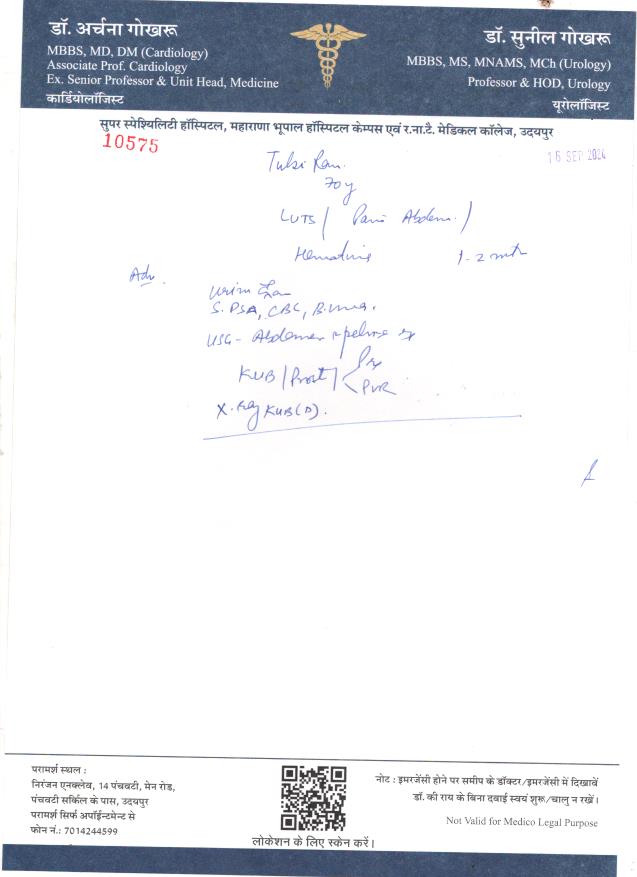 डॉ. अर्चना गोखरू
MBBS, MD, DM (Cardiology)
Associate Prof. Cardiology
Ex. Senior Professor & Unit Head, Medicine
कार्डियोलॉजिस्ट
डॉ. सुनील गोखरू
MBBS, MS, MNAMS, MCh (Urology)
Professor & HOD, Urology
यूरोलॉजिस्ट
सुपर स्पेश्यिलिटी हॉस्पिटल, महाराणा भूपाल हॉस्पिटल केम्पस एवं र.ना.टै. मेडिकल कॉलेज, उदयपुर
10575
16 SEP 2024
Tulsi Ram.
70y
LUTS / Pain Abdom. /
1-2 mth
Adv.
S. PSA, CBC, B.Urea,
USG - Abdomen
KUB / Prost /
PVR
X-Ray KUB (D).
परामर्श स्थल :
निरंजन एनक्लेव, 14 पंचवटी, मेन रोड,
पंचवटी सर्किल के पास, उदयपुर
परामर्श सिर्फ अपॉईन्टमेन्ट से
फोन नं.: 7014244599
लोकेशन के लिए स्केन करें।
नोट : इमरजेंसी होने पर समीप के डॉक्टर/इमरजेंसी में दिखावें
डॉ. की राय के बिना दवाई स्वयं शुरू/चालु न रखें।
Not Valid for Medico Legal Purpose